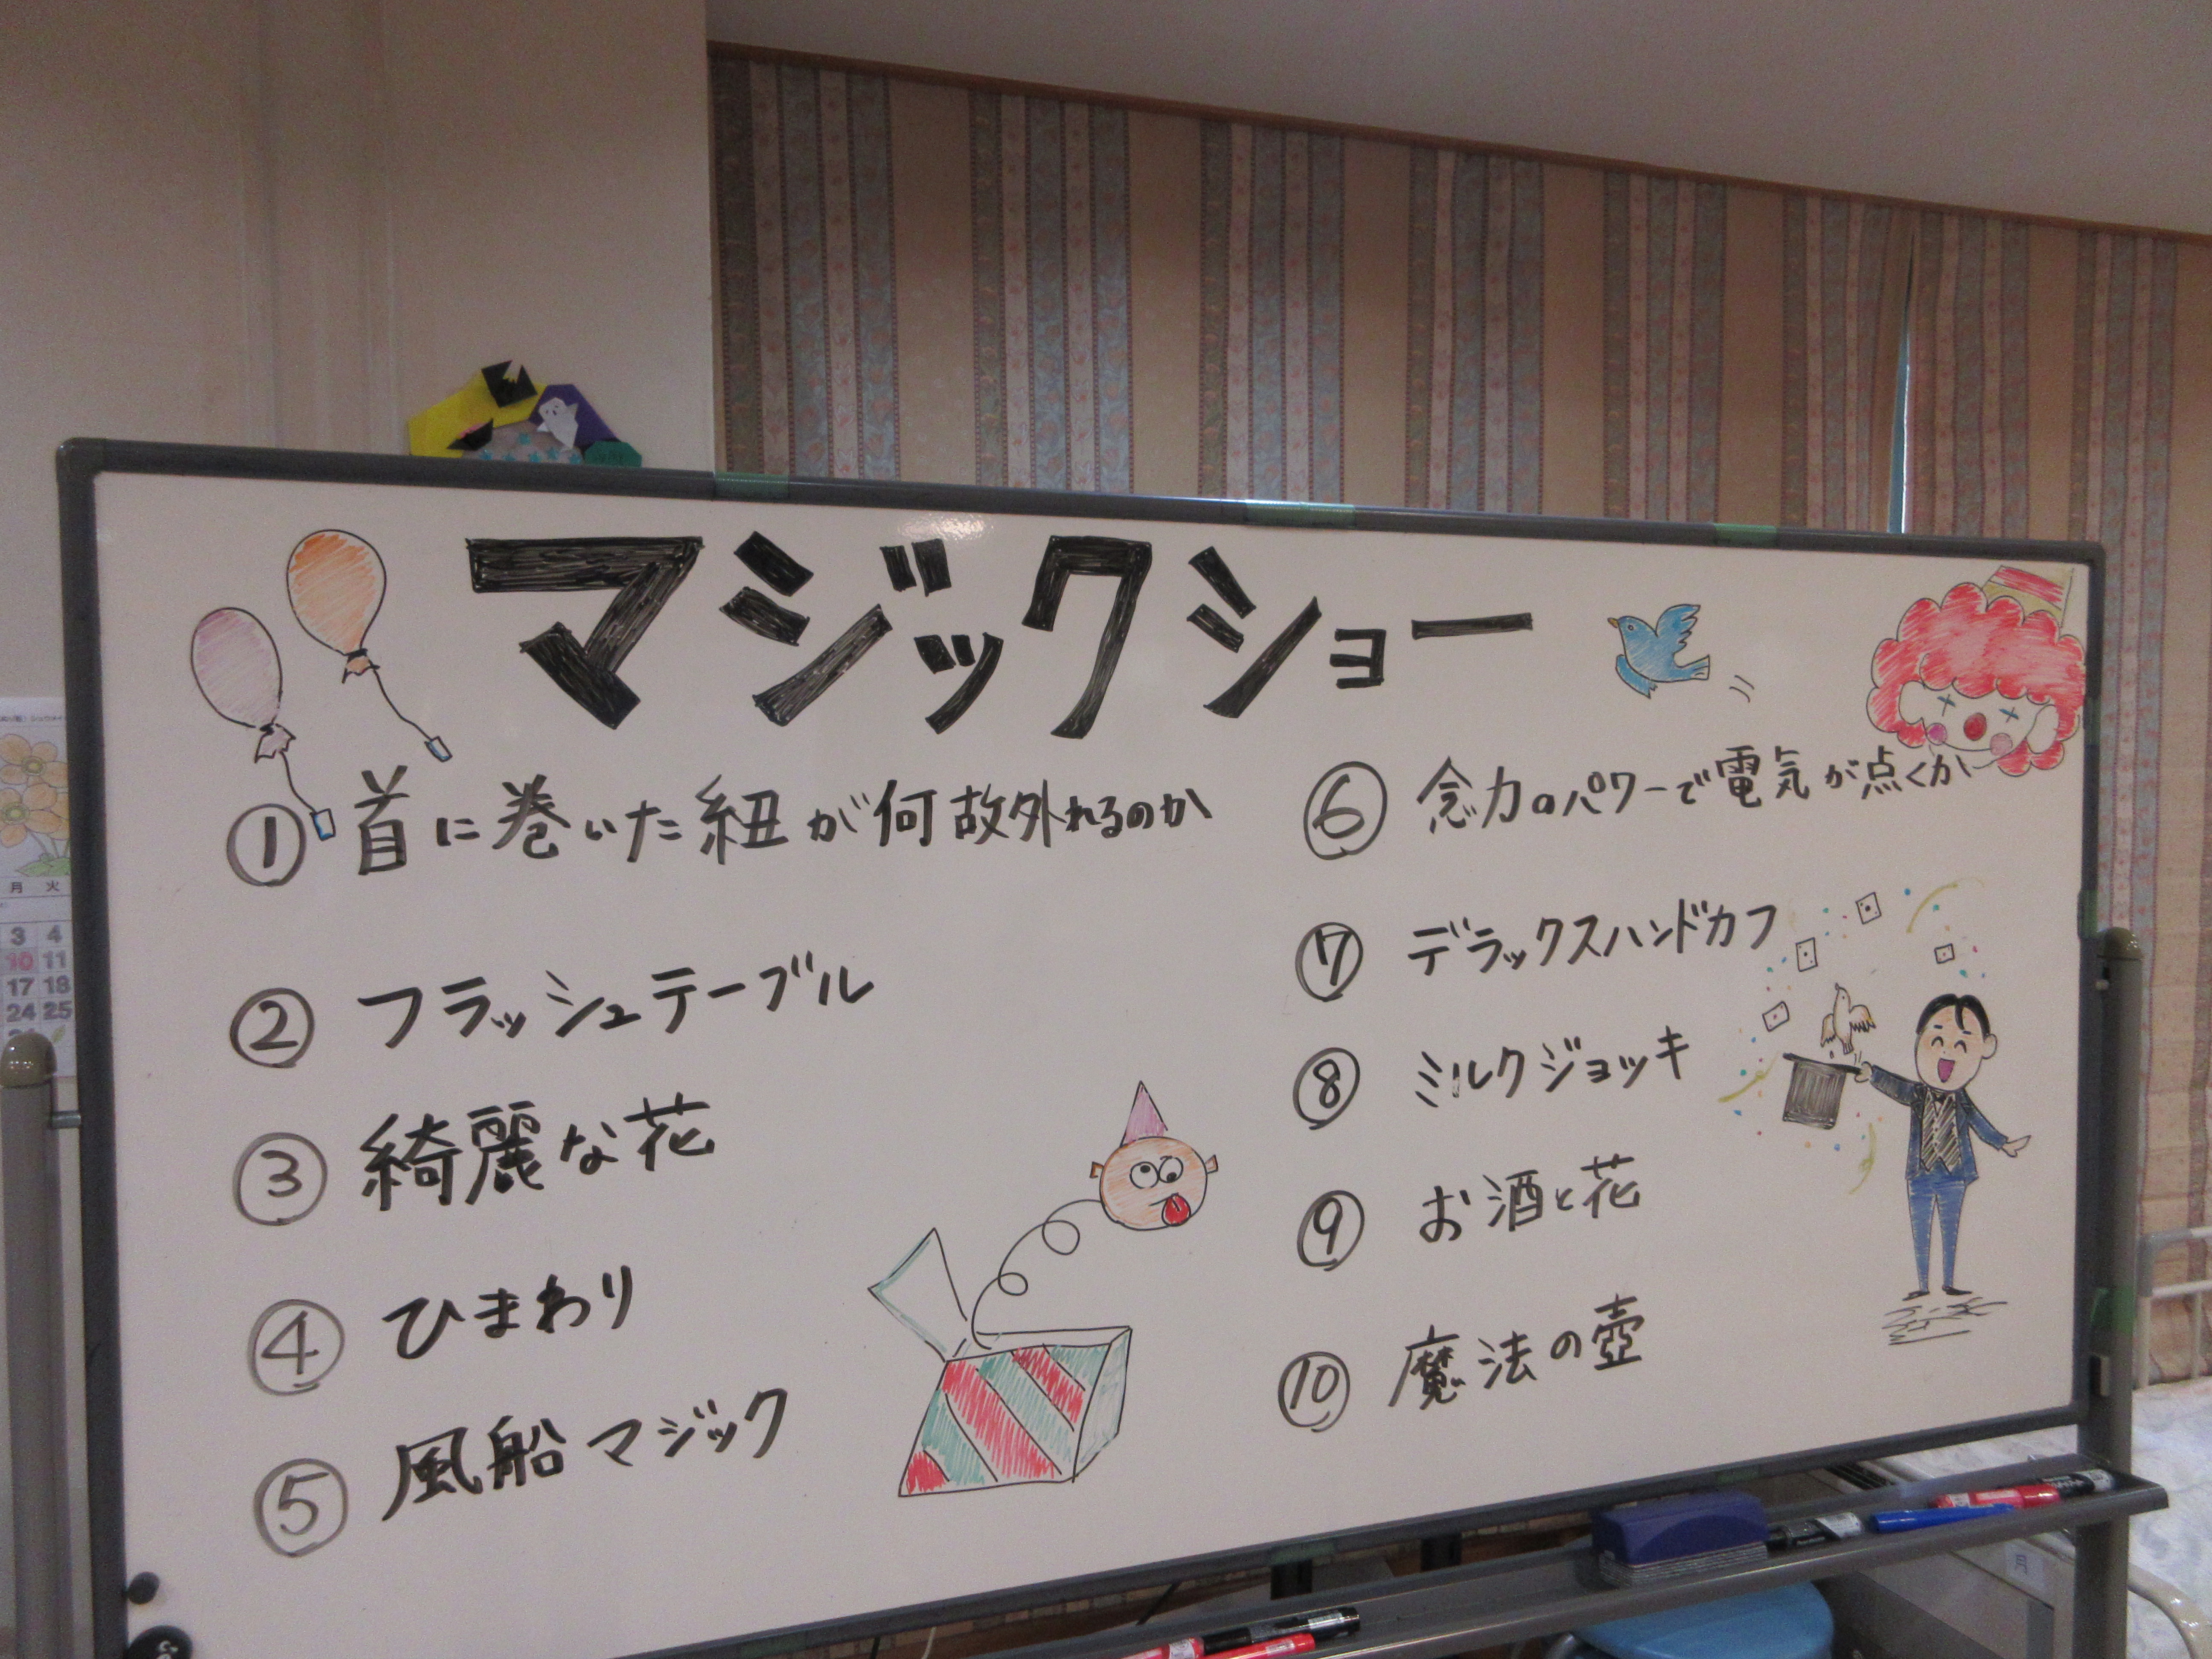 マジックショー
① 首に巻いた紐が何故外れるのか
② フラッシュテーブル
③ 綺麗な花
④ ひまわり
⑤ 風船マジック
⑥ 念力のパワーで電気が点くか
⑦ デラックスハンドカフ
⑧ ミルクジョッキ
⑨ お酒と花
⑩ 魔法の壺
月 火
3 4
10 11
17 18
24 25
月